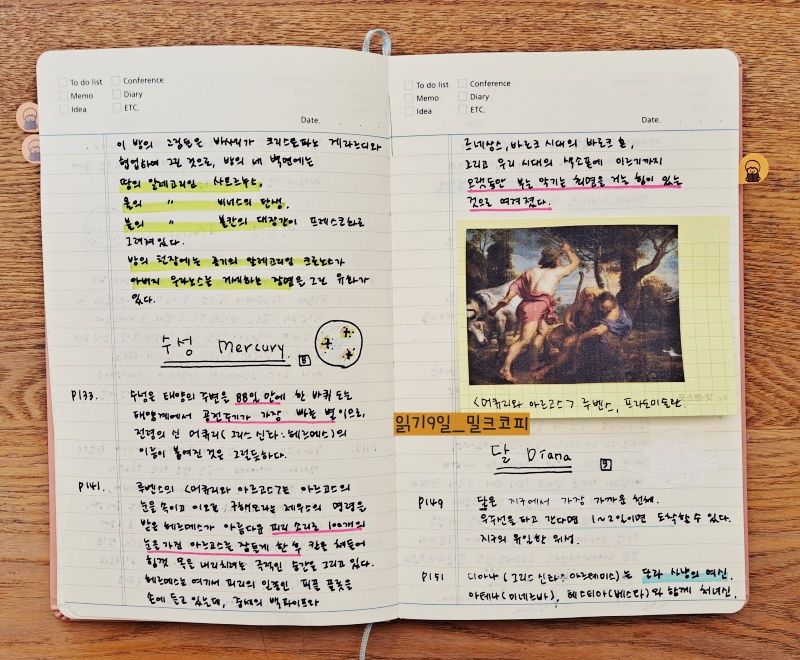 To do list Conference
Memo Diary
Idea ETC.
Date.
이 방의 그림들은 바사리가 크리스토파노 게라르디와
협업하여 그린 것으로, 방의 네 벽면에는
땅의 알레고리인 사투르누스,
물의 〃 비너스의 탄생,
불의 〃 불칸의 대장간이 프레스코화로
그려져 있다.
방의 천장에는 공기의 알레고리인 크로노스가
아버지 우라노스를 거세하는 장면을 그린 유화가
있다.
수성 Mercury. 8
P133. 수성은 태양의 주변을 88일 만에 한 바퀴 도는
태양계에서 공전주기가 가장 빠른 별이므로,
전령의 신 머큐리(그리스 신화:헤르메스)의
이름이 붙여진 것은 그럴듯하다.
P141. 루벤스의 <머큐리와 아르고스>는 아르고스의
눈을 속이고 이오를 구해오라는 제우스의 명령을
받은 헤르메스가 아름다운 피리 소리로 100개의
눈을 가진 아르고스를 잠들게 한 후 칼을 쳐들어
힘껏 목을 내리치려는 극적인 순간을 그리고 있다.
헤르메스는 여기서 피리의 일종인 피콜 플룻을
손에 들고 있는데, 중세의 백파이프와
To do list Conference
Memo Diary
Idea ETC.
Date.
르네상스, 바로크 시대의 바로크 혼,
그리고 우리 시대의 색소폰에 이르기까지
오랫동안 부는 악기는 최면을 거는 힘이 있는
것으로 여겨졌다.
<머큐리와 아르고스> 루벤스, 프라도미술관
포스트-잇
읽기9일_밀크코피
달 Diana 9
P149 달은 지구에서 가장 가까운 천체.
우주선을 타고 간다면 1~2일이면 도착할 수 있다.
지구의 유일한 위성.
P151 디아나(그리스 신화:아르테미스)는 달과 사냥의 여신.
아테나(미네르바), 헤스티아(베스타)와 함께 처녀신.